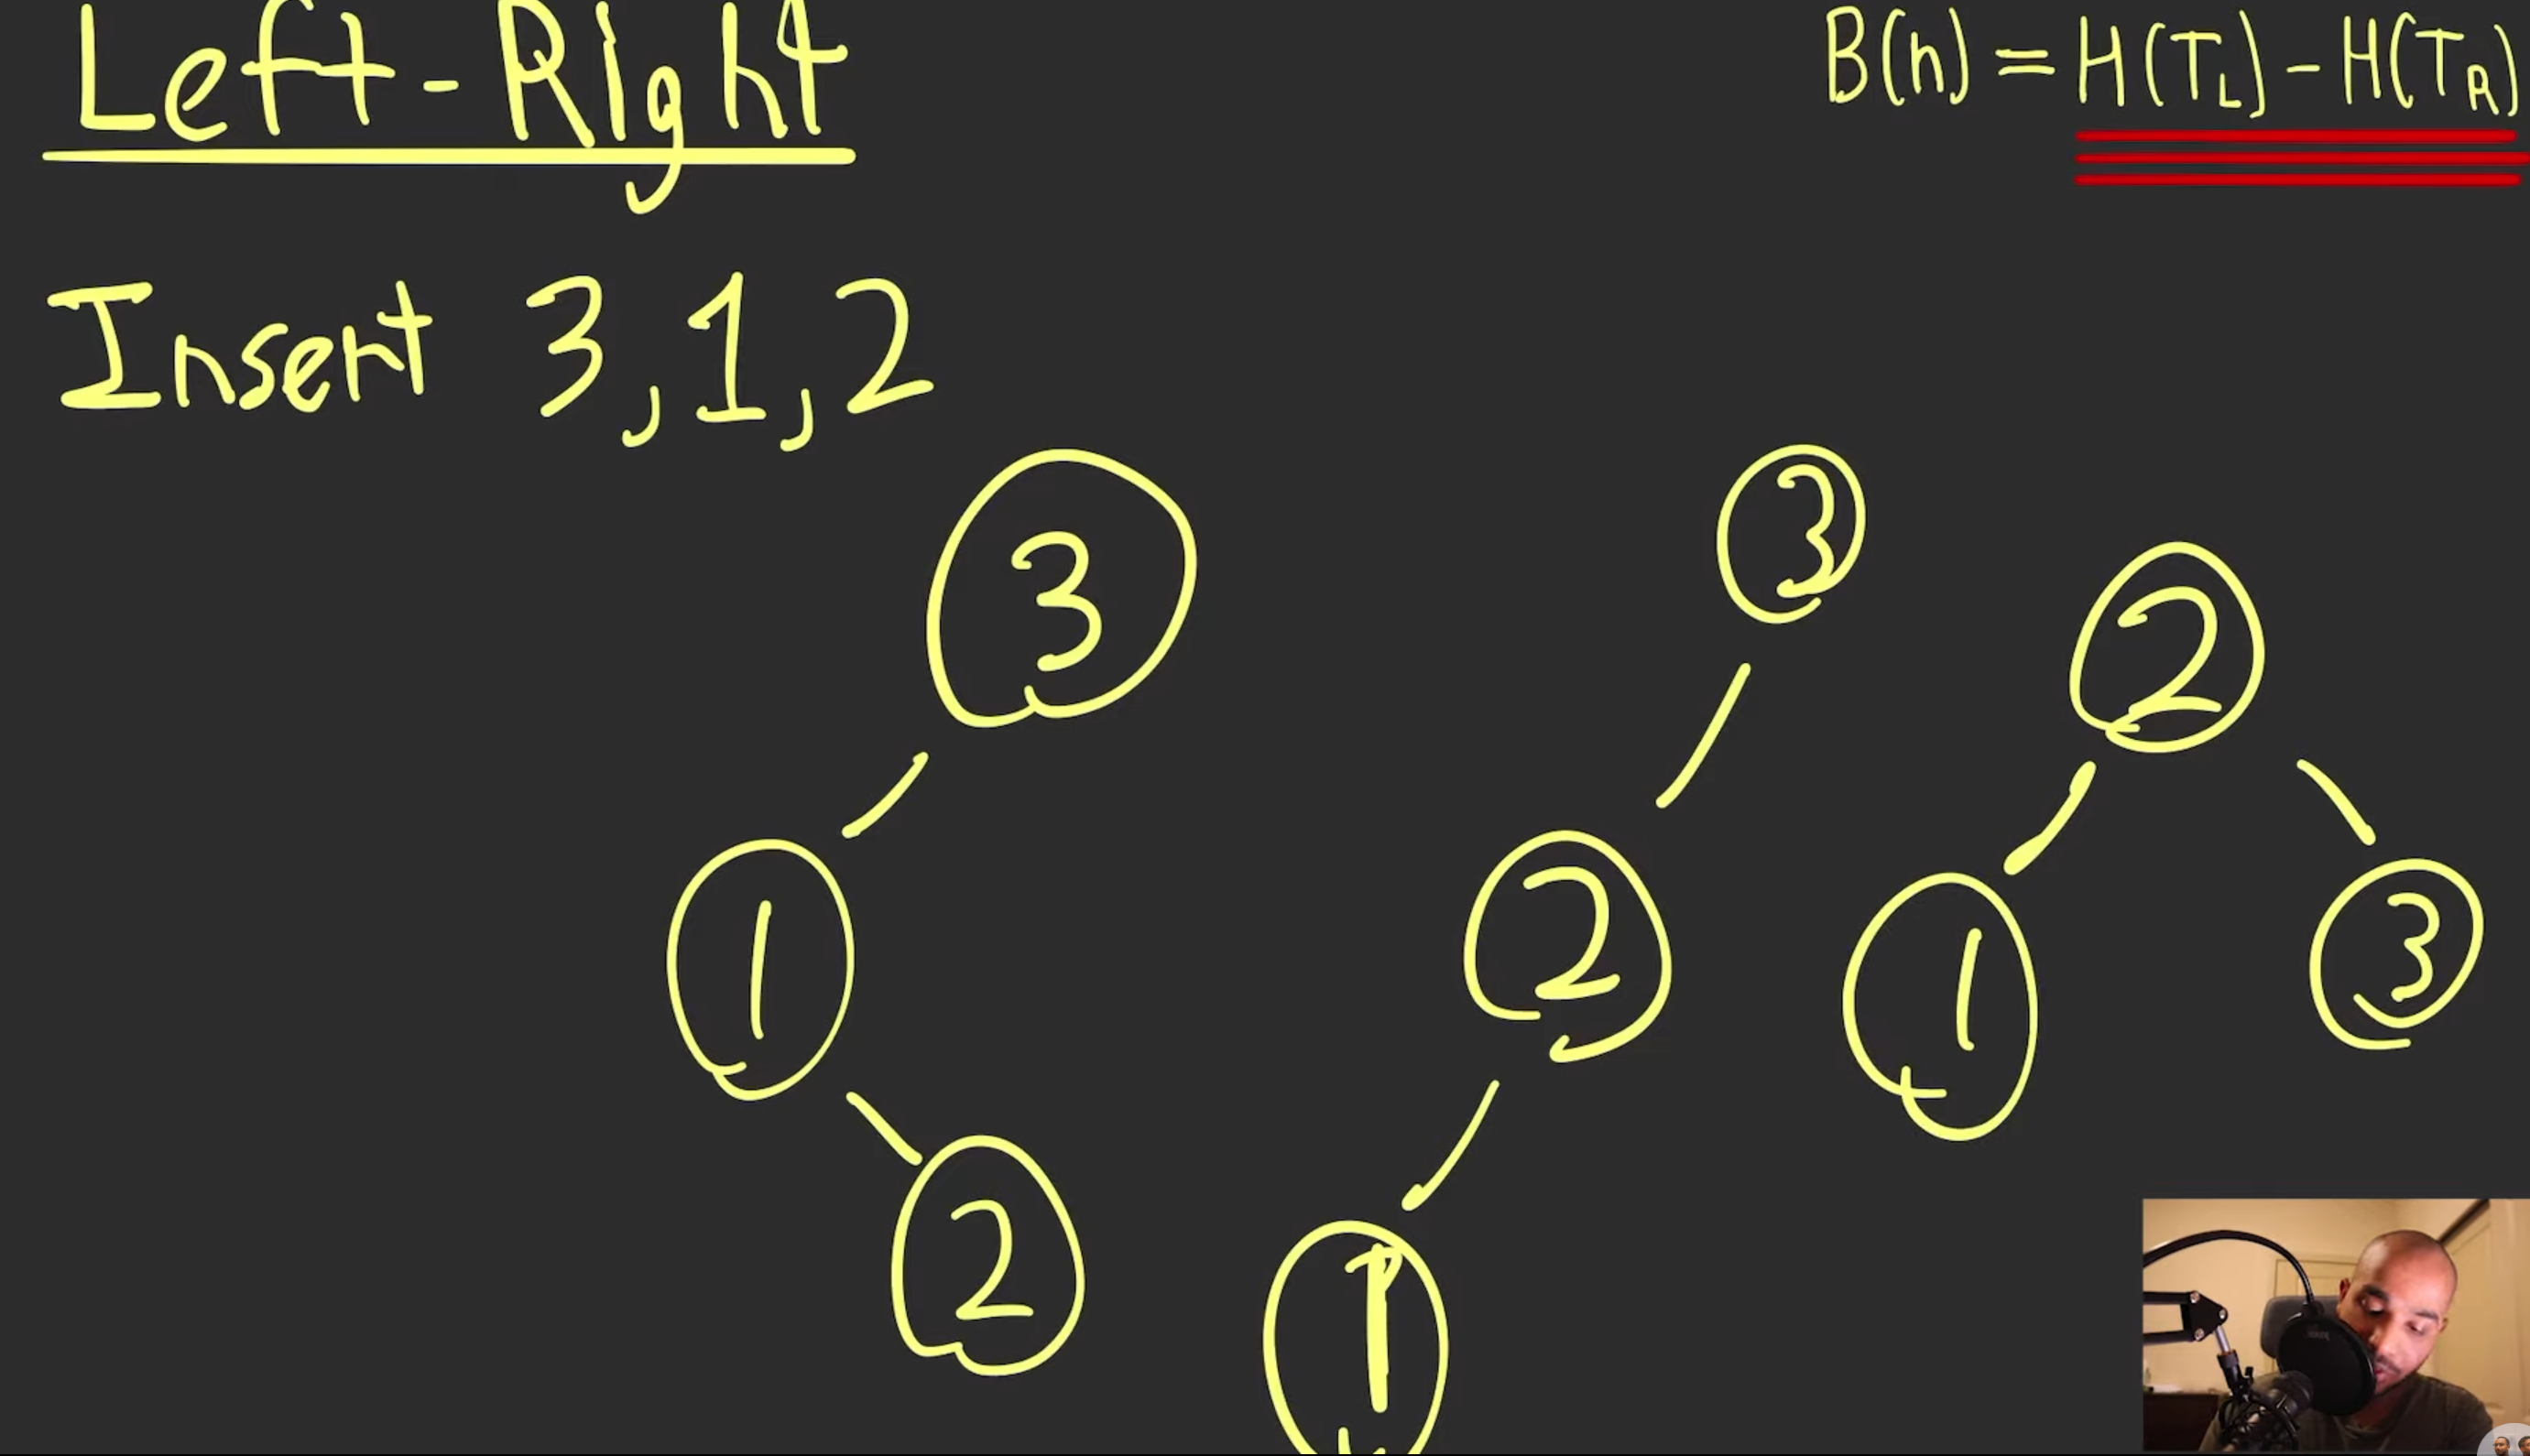 Left-Right
B(n) = H(T_L) - H(T_R)
Insert 3,1,2
3
1
2
3
2
1
2
1
3